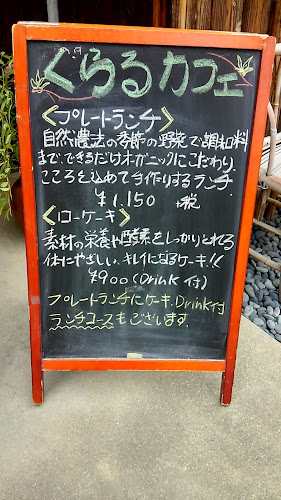 くらるカフェ
<プレートランチ>
自然農法の季節の野菜で調味料
まで、できるだけオーガニックにこだわり、
こころを込めて手作りするランチ
¥1,150 +税
<ローケーキ>
素材の栄養や酵素をしっかりとれる
体にやさしい、キレイになるケーキ!!
¥900(Drink付)
プレートランチにケーキ、Drink付
ランチコースもございます。